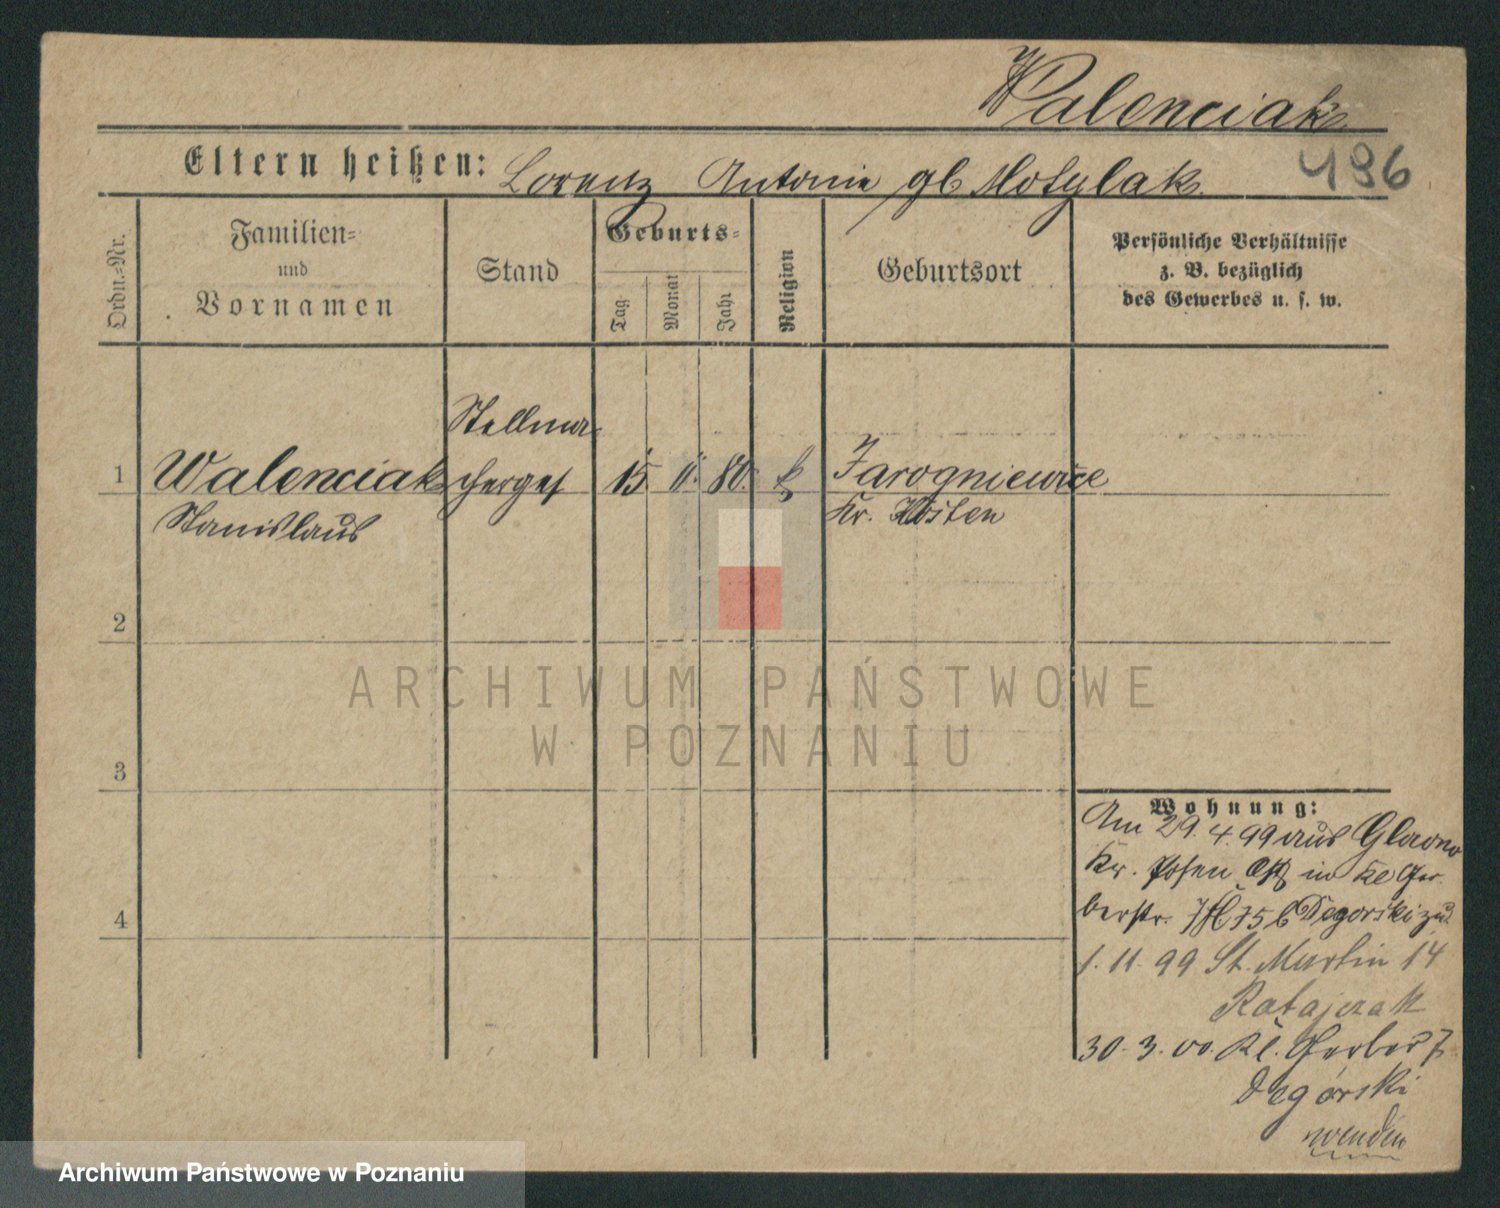 Walenciak
Eltern heißen: Lorenz Antonie gb Motylak
496
Ordn.-Nr.
Familien-
und
Vornamen
Stand
Geburts-
Tag
Monat
Jahr
Religion
Geburtsort
Persönliche Verhältnisse
z. B. bezüglich
des Gewerbes u. s. w.
Stellma-
1 Walenciak cherges 15 11. 80. k Jarogniewice
Stanislaus Kr. Kosten
2
ARCHIWUM PAŃSTWOWE
W POZNANIU
3
Wohnung:
Am 29.4.99 aus Glowno
Kr. Posen Ost in Kl Ger-
4 berstr. 7 H I 5 b Degorski
1.11.99 St. Martin 14
Ratajczak
30.3.00. Kl. Gerber 7
Degórski
wenden
Archiwum Państwowe w Poznaniu